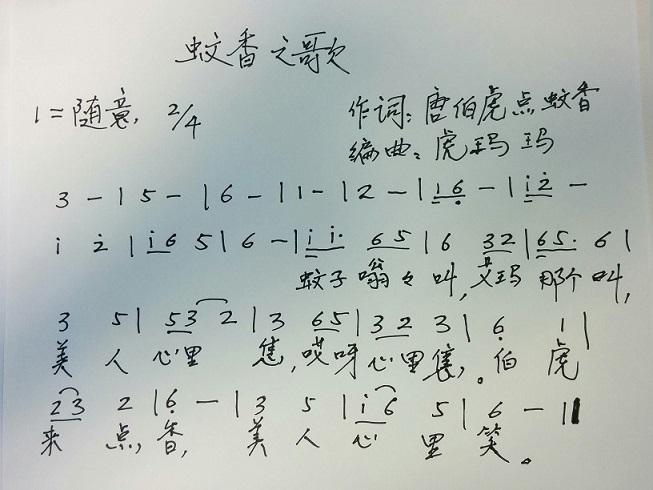 蚊香之歌
1=随意, 2/4 作词: 唐伯虎点蚊香
编曲: 虎玛玛
3 - | 5 - | 6 - | 1 - | 2 - | 1 6̣ - | i̇ 2̇ -
i̇ 2̇ | i̇ 6 5 | 6 - | i̇ i̇. 6 5 | 6 3 2 | 6 5. 6 |
蚊子嗡々叫, 玛那个叫,
3 5 | 5 3 2 | 3 6 5 | 3 2 3 | 6̣ 1 |
美人心里焦, 哎呀心里焦。伯虎
2 3 2 | 6̣ - | 3 5 | i̇ 6 5 | 6 - ||
来点香, 美人心里笑。